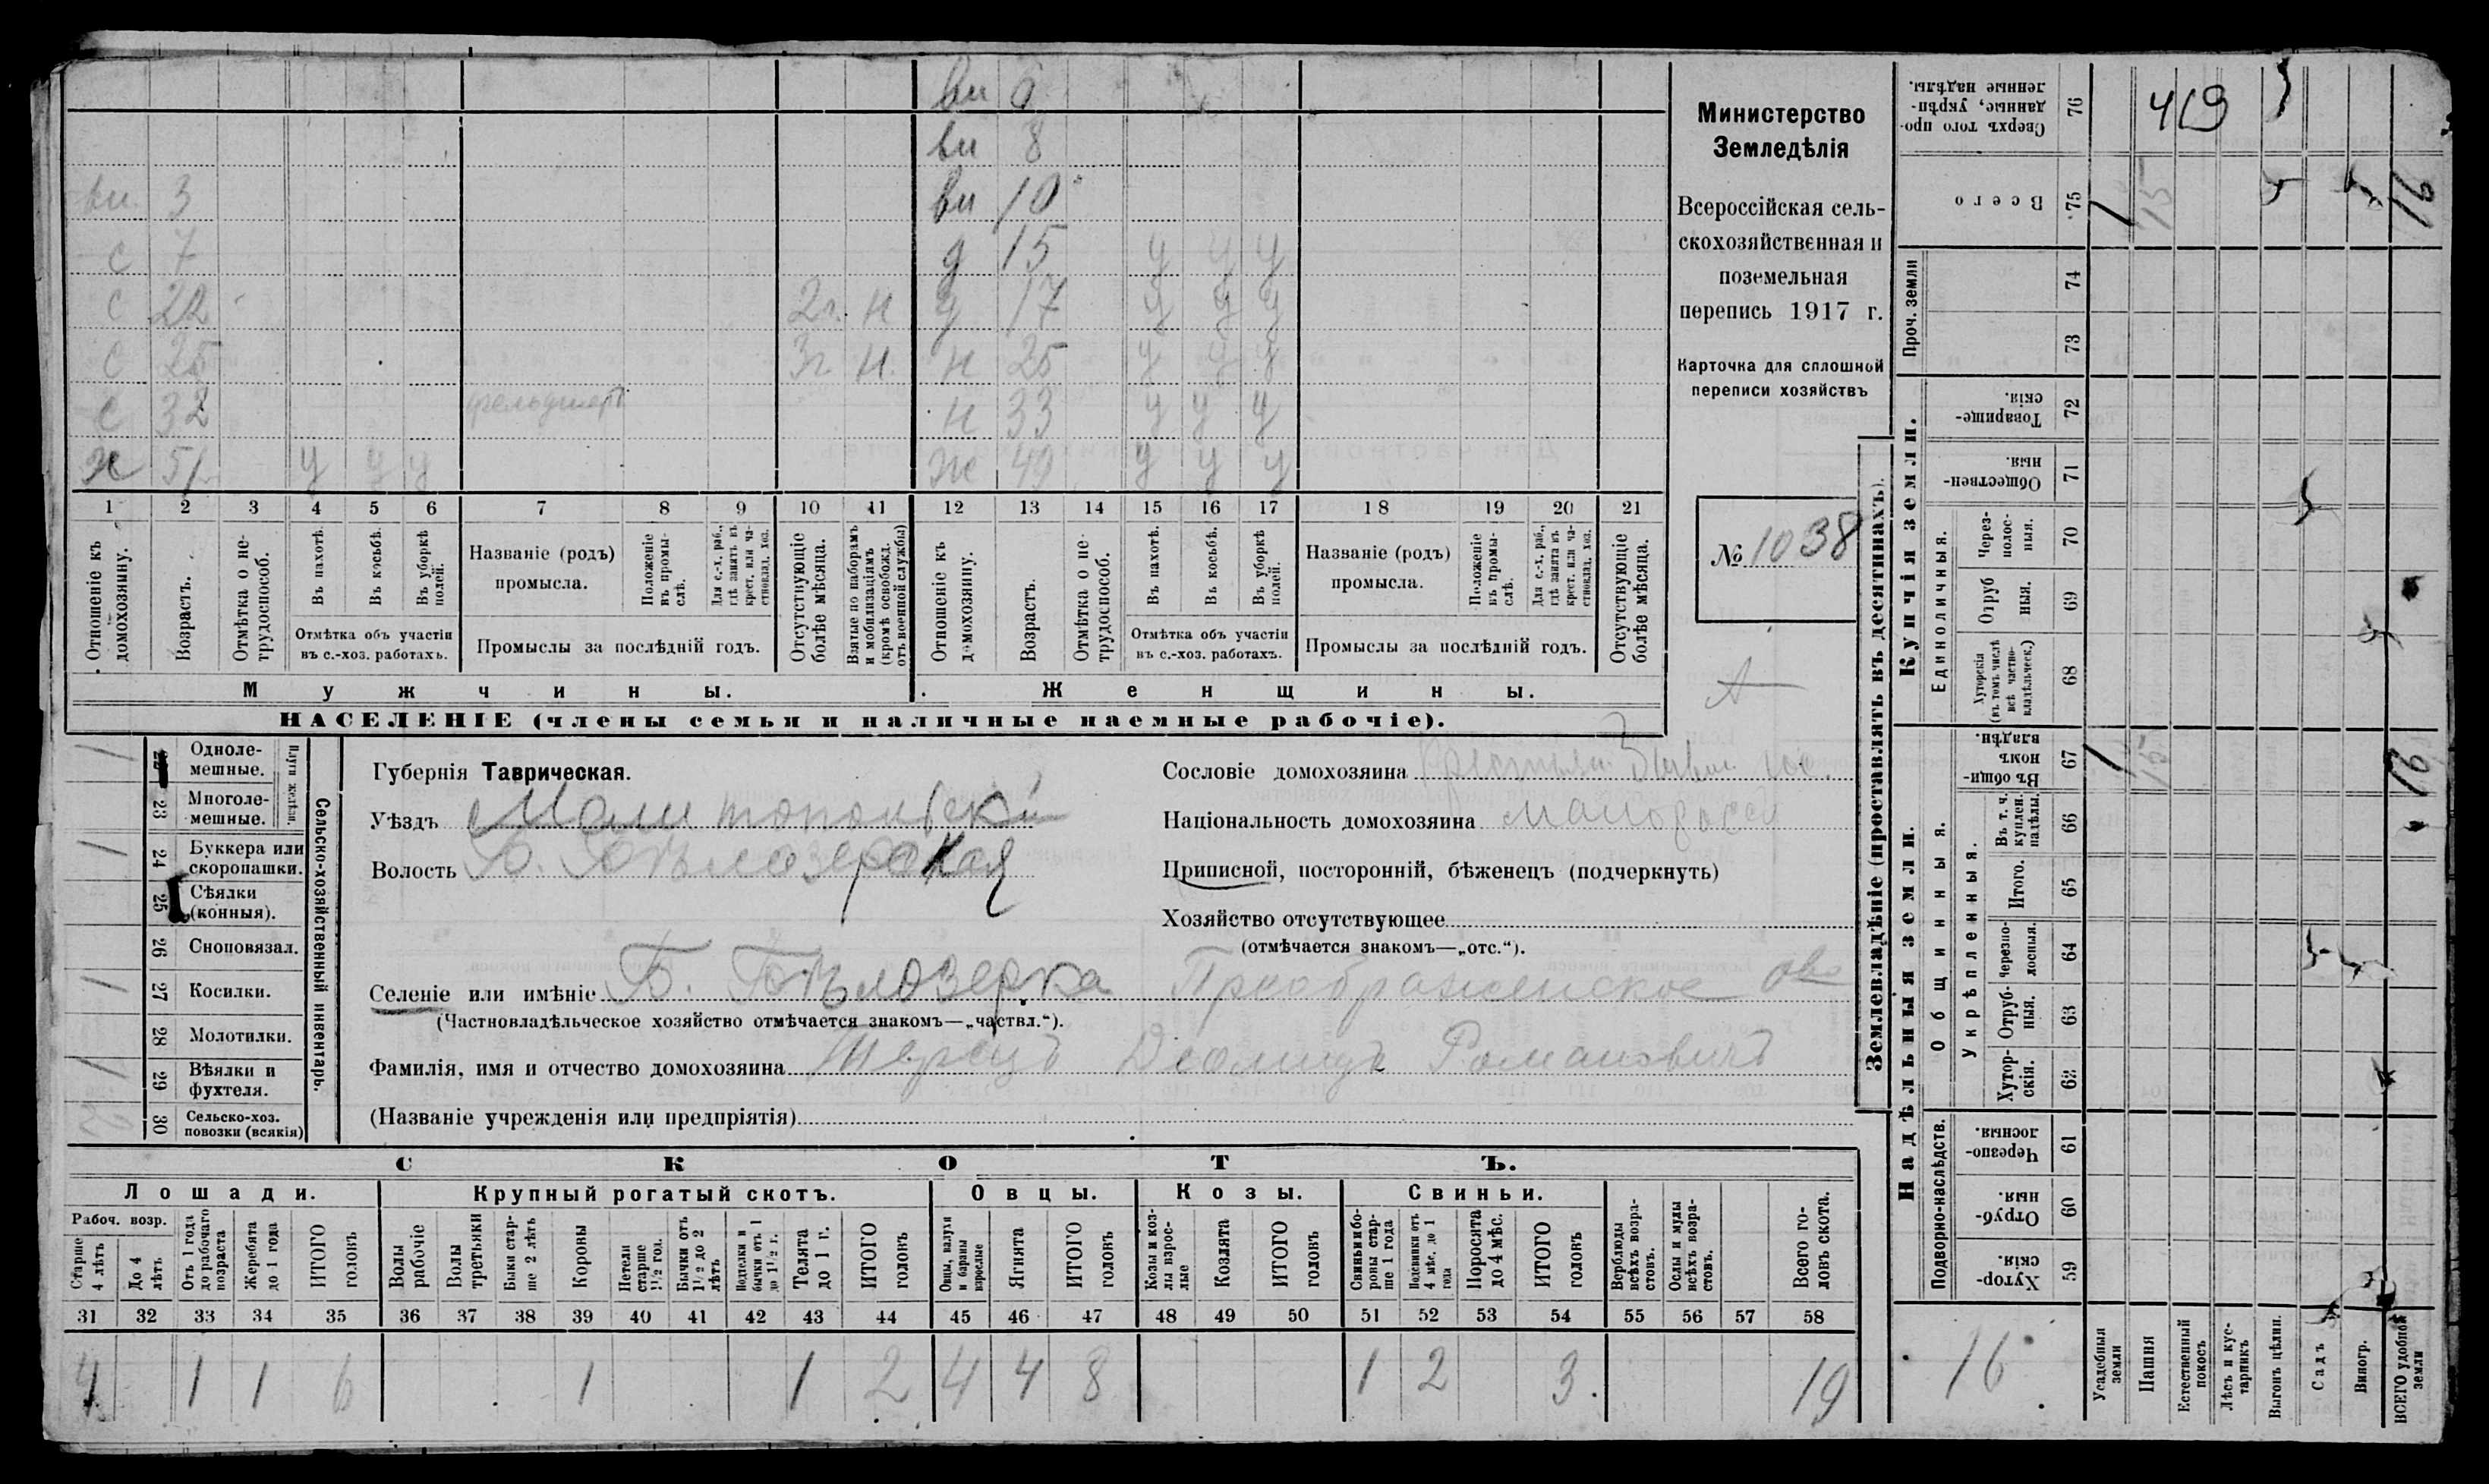 вн 6
вн 8
вн 3 вн 10
с 7 д 15 у у у
с 22 2г. н д 17 у у у
с 25 3г. н. н 25 у у у
с 32 фельдшеръ н 33 у у у
ж 51 у у у ж 49 у у у
1 2 3 4 5 6 7 8 9 10 11 12 13 14 15 16 17 18 19 20 21
Отношеніе къ домохозяину.
Возрастъ.
Отмѣтка о нетрудоспособ.
Въ пахотѣ.
Въ косьбѣ.
Въ уборкѣ полей.
Отмѣтка объ участіи
въ с.-хоз. работахъ.
Названіе (родъ)
промысла.
Положеніе въ промыслѣ.
Для с.-х. раб., гдѣ занятъ въ крест. или частновлад. хоз.
Промыслы за послѣдній годъ.
Отсутствующіе болѣе мѣсяца.
Взятые по наборамъ и мобилизаціямъ (кромѣ освобожд. отъ военной службы)
Отношеніе къ домохозяину.
Возрастъ.
Отмѣтка о нетрудоспособ.
Въ пахотѣ.
Въ косьбѣ.
Въ уборкѣ полей.
Отмѣтка объ участіи
въ с.-хоз. работахъ.
Названіе (родъ)
промысла.
Положеніе въ промыслѣ.
Для с.-х. раб., гдѣ занята въ крест. или частновлад. хоз.
Промыслы за послѣдній годъ.
Отсутствующіе болѣе мѣсяца.
Мужчины. Женщины.
НАСЕЛЕНІЕ (члены семьи и наличные наемные рабочіе).
Министерство
Земледѣлія
Всероссійская сель-
скохозяйственная и
поземельная
перепись 1917 г.
Карточка для сплошной
переписи хозяйствъ
№ 1038
А
Сельско-хозяйственный инвентарь.
Плуги желѣзн.
22 Однолемешные. 1
23 Многолемешные.
24 Буккера или скоропашки. 1
25 Сѣялки (конныя).
26 Сноповязал.
27 Косилки. 1
28 Молотилки.
29 Вѣялки и фухтеля. 1
30 Сельско-хоз. повозки (всякія)
Губернія Таврическая.
Уѣздъ Мелитопольскій
Волость Б. Бѣлозерская
Селеніе или имѣніе Б. Бѣлозерка Преображенское о-во
(Частновладѣльческое хозяйство отмѣчается знакомъ—„частвл.“).
Фамилія, имя и отчество домохозяина Романовичъ
(Названіе учрежденія или предпріятія)
Сословіе домохозяина
Національность домохозяина малоросс
Приписной, посторонній, бѣженецъ (подчеркнуть)
Хозяйство отсутствующее
(отмѣчается знакомъ—„отс.“).
СКОТЪ.
Лошади. Крупный рогатый скотъ. Овцы. Козы. Свиньи.
Рабоч. возр.
Старше 4 лѣтъ
До 4 лѣтъ
Отъ 1 года до рабочаго возраста
Жеребята до 1 года
ИТОГО головъ
Волы рабочіе
Волы третьяки
Быки старше 2 лѣтъ
Коровы
Нетели старше 1½ год.
Бычки отъ 1½ до 2 лѣтъ
Подтелки и бычки отъ 1 до 1½ г.
Телята до 1 г.
ИТОГО головъ
Овцы, валухи и бараны взрослые
Ягнята
ИТОГО головъ
Козы и козлы взрослые
Козлята
ИТОГО головъ
Свиньи и боровы старше 1 года
Подсвинки отъ 4 мѣс. до 1 года
Поросята до 4 мѣс.
ИТОГО головъ
Верблюды всѣхъ возрастовъ.
Ослы и мулы всѣхъ возрастовъ.
Всего головъ скота.
31 32 33 34 35 36 37 38 39 40 41 42 43 44 45 46 47 48 49 50 51 52 53 54 55 56 57 58
4 1 1 6 1 1 2 4 4 8 1 2 3. 19
Землевладѣніе (проставлять въ десятинахъ).
Сверхъ того проданные, укрѣпленные надѣлы. 76 419
Всего 75 1 15 16
Проч. земли 74 73
Купчія земли.
Товарищескія. 72
Общественныя. 71
Единоличныя.
Черезполосныя. 70
Отрубныя. 69
Хуторскія (въ томъ числѣ всѣ частновладѣльческ.) 68
Надѣльныя земли.
Общинныя.
Въ общинномъ владѣн. 67 1 15 16
Укрѣпленныя.
Въ т. ч. куплен. надѣлы. 66
Итого. 65
Черезполосныя. 64
Отрубныя. 63
Хуторскія. 62
Подворно-наслѣдств.
Черезполосныя. 61
Отрубныя. 60
Хуторскія. 59
16
Усадебныя земли
Пашня
Естественный покосъ
Лѣсъ и кустарникъ
Выгонъ цѣлин.
Садъ
Виногр.
ВСЕГО удобной земли